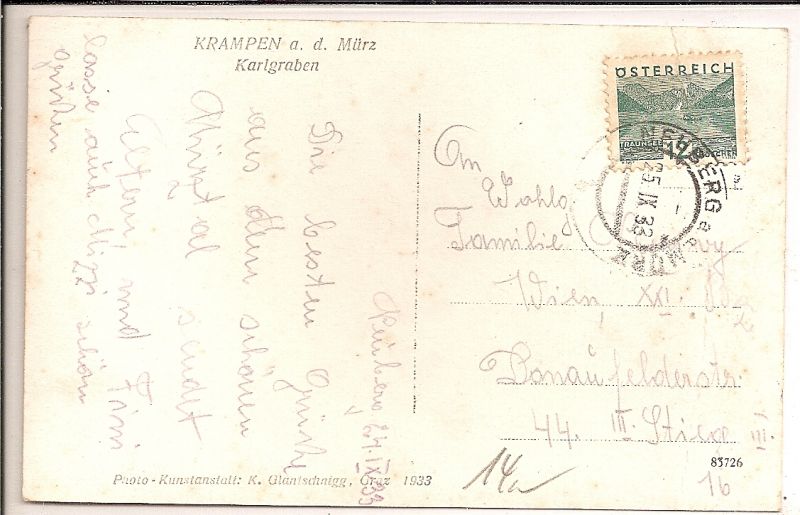 KRAMPEN a. d. Mürz
Karlgraben
ÖSTERREICH
12
NEUBERG a. d. MÜRZ
25. IX 33
Neuberg, 24. IX 33
Die besten Grüße
aus dem schönen
Mürztal sendet
Eltern und Fini
lasse auch Mizzi schön
grüßen
An
Wohlg.
Familie
Wien, XXI.
Donaufelderstr.
44. III. Stiege III.
83726
14a
16
Photo-Kunstanstalt: K. Glantschnigg, Graz 1933